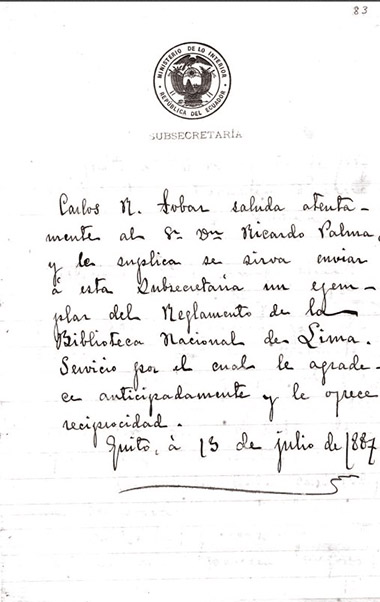 83
MINISTERIO DE LO INTERIOR
REPÚBLICA DEL ECUADOR
SUBSECRETARÍA
Carlos R. Tobar saluda atenta-
mente al Sr. Dn Ricardo Palma,
y le suplica se sirva enviar
á esta Subsecretaría un ejem-
plar del Reglamento de la
Biblioteca Nacional de Lima.
Servicio por el cual le agrade-
ce anticipadamente y le ofrece
reciprocidad.
Quito, á 13 de julio de 1887